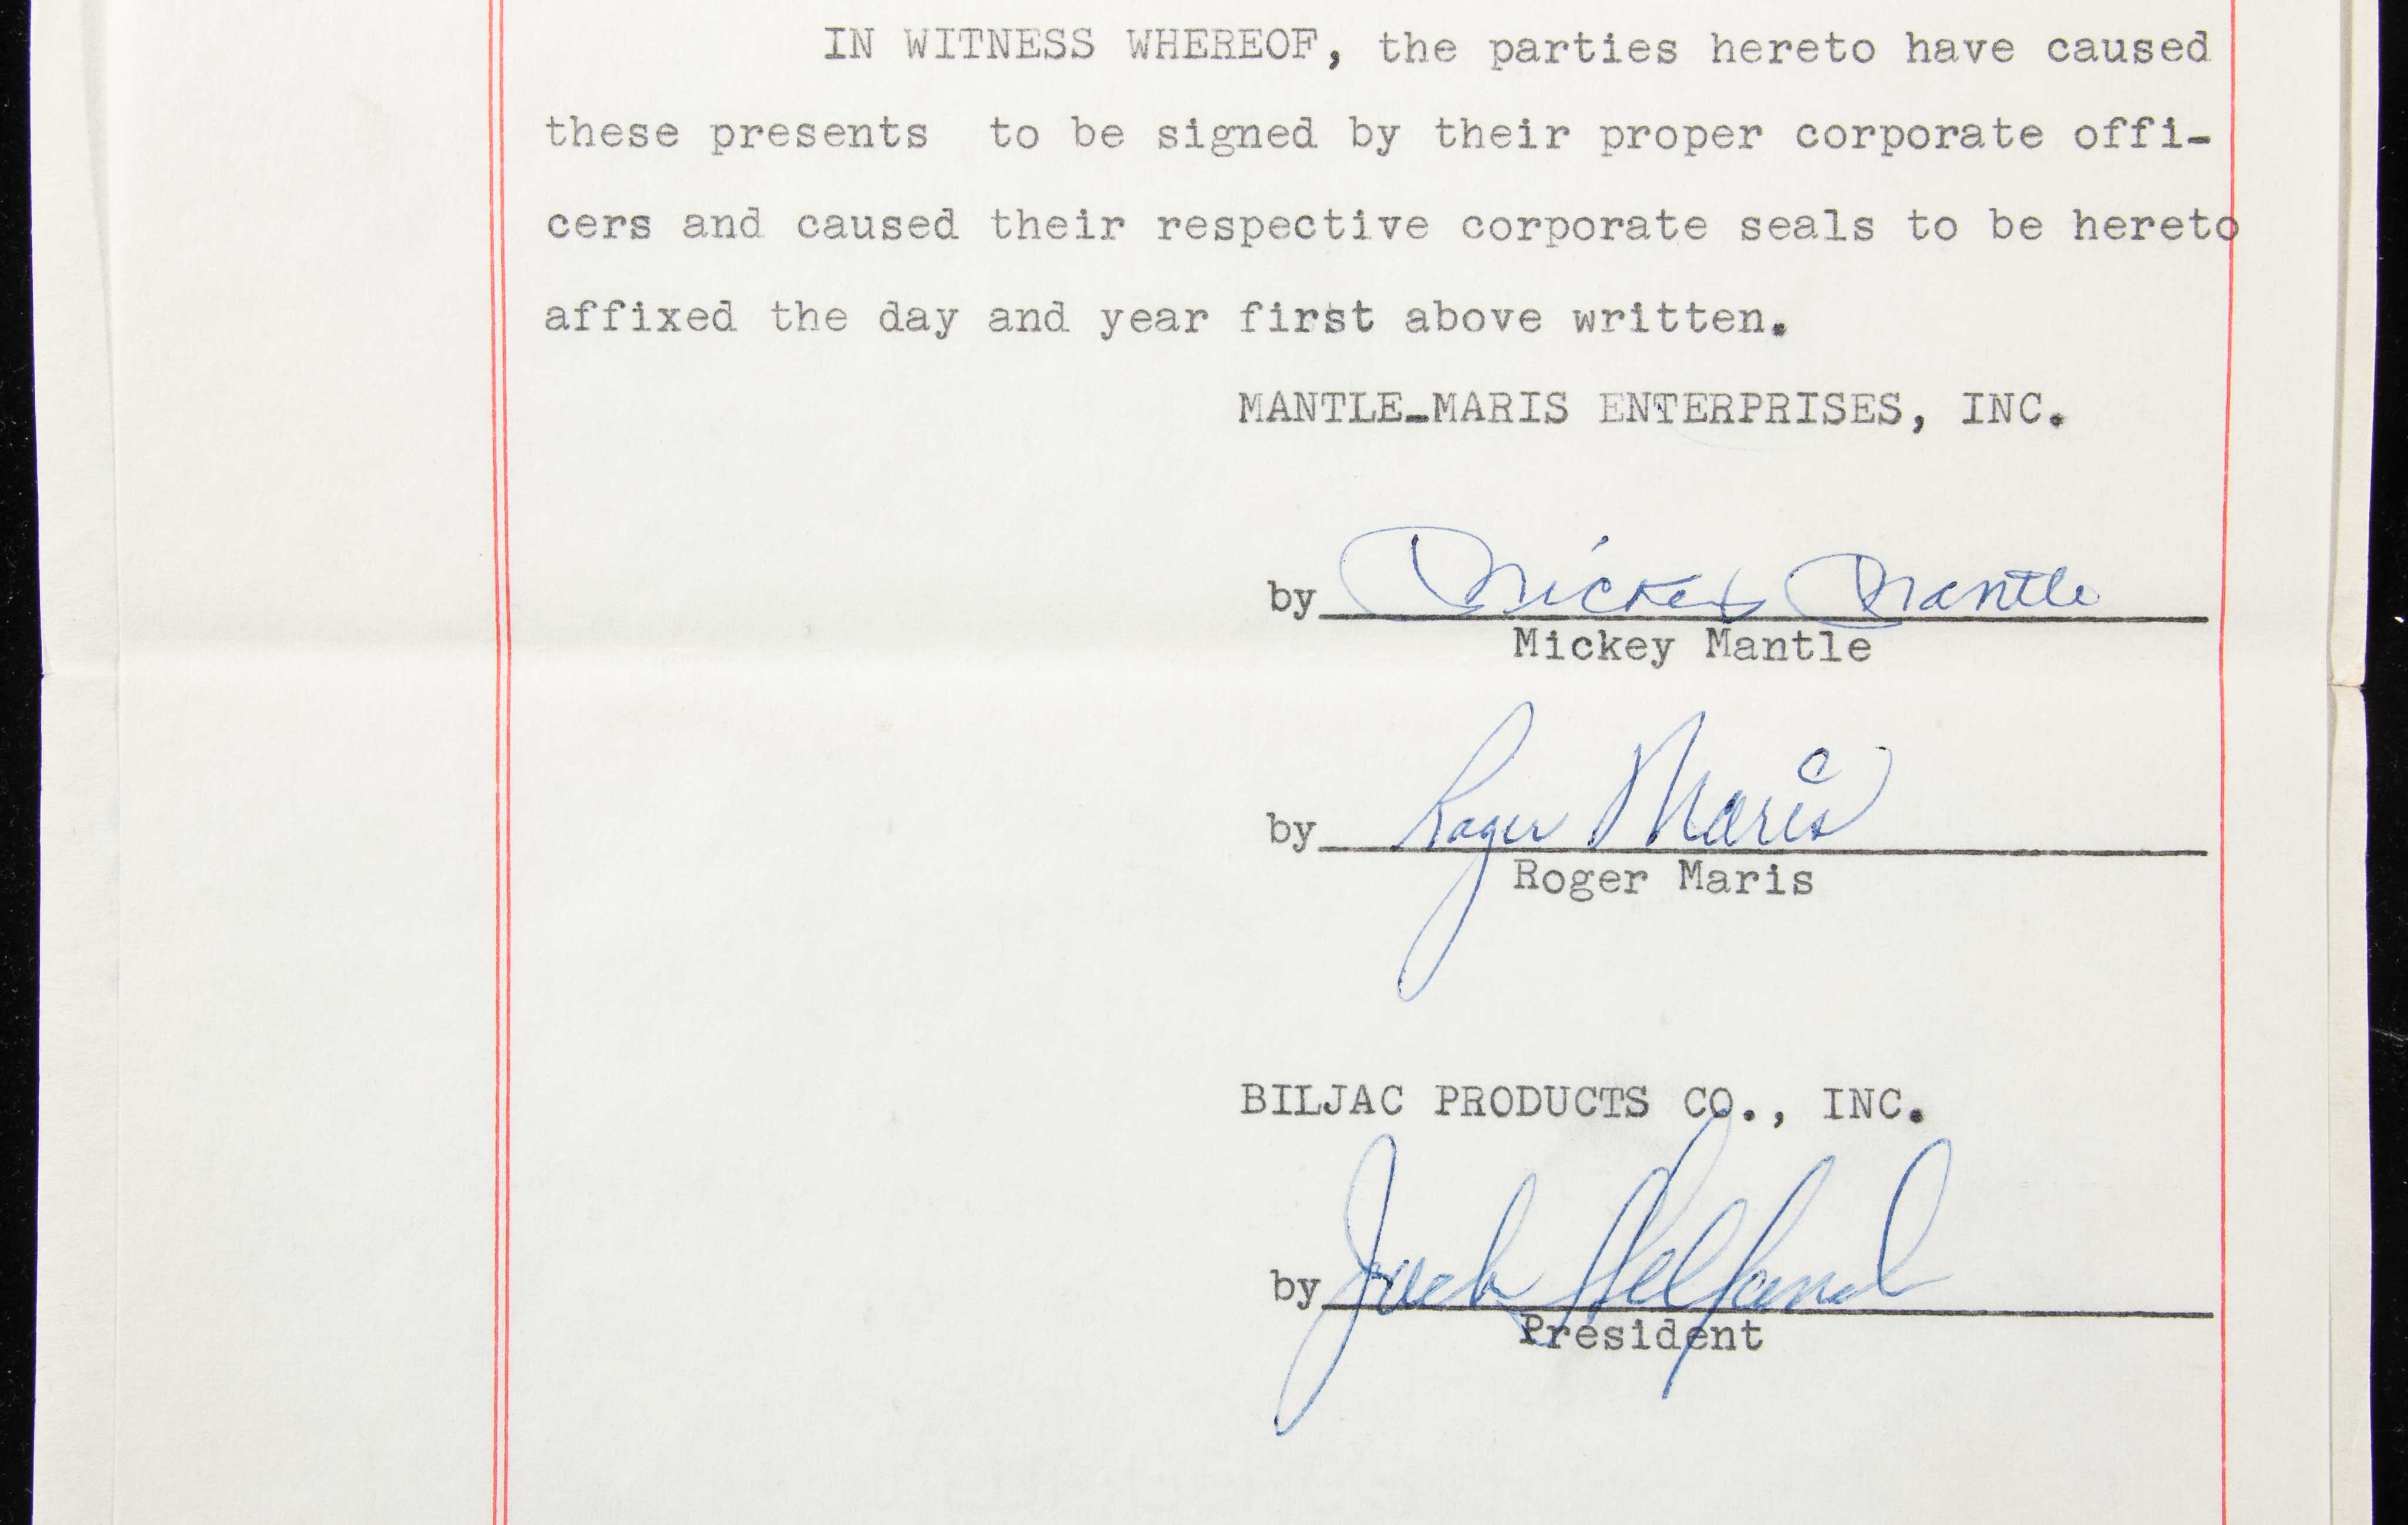 IN WITNESS WHEREOF, the parties hereto have caused
these presents to be signed by their proper corporate offi-
cers and caused their respective corporate seals to be hereto
affixed the day and year first above written.
MANTLE-MARIS ENTERPRISES, INC.
by Mickey Mantle
Mickey Mantle
by Roger Maris
Roger Maris
BILJAC PRODUCTS CO., INC.
by Jack Helfand
President